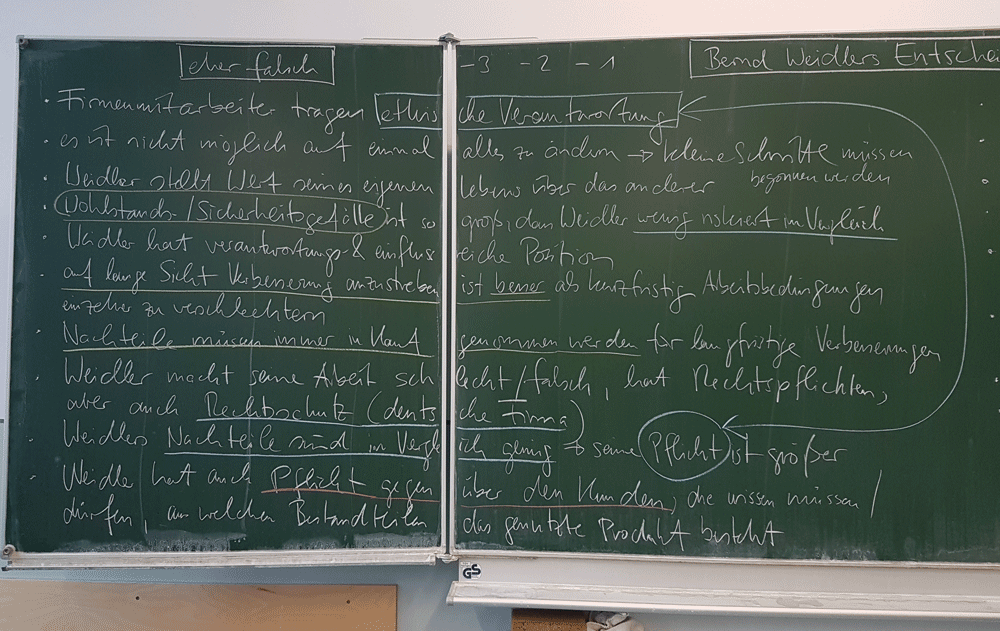 eher falsch -3 -2 -1 Bernd Weidlers Entsche
· Firmenmitarbeiter tragen ethische Verantwortung
· es ist nicht möglich auf einmal alles zu ändern → kleine Schritte müssen
begonnen werden
· Weidler stellt Wert seines eigenen Lebens über das anderer
· Wohlstands-/Sicherheitsgefälle ist so groß, dass Weidler wenig riskiert im Vergleich
· Weidler hat verantwortungs- & einflussreiche Position
· auf lange Sicht Verbesserung anzustreben ist besser als kurzfristig Arbeitsbedingungen
einzelner zu verschlechtern
· Nachteile müssen immer in Kauf genommen werden für langfristige Verbesserungen
· Weidler macht seine Arbeit schlecht/falsch, hat Rechtspflichten,
aber auch Rechtsschutz (deutsche Firma)
· Weidlers Nachteile sind im Vergleich gering → seine Pflicht ist größer
· Weidler hat auch Pflicht gegenüber den Kunden, die wissen müssen/
dürfen, aus welchen Bestandteilen das genutzte Produkt besteht
GS